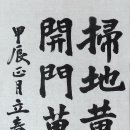 掃地黄
開門萬
甲辰正月立春